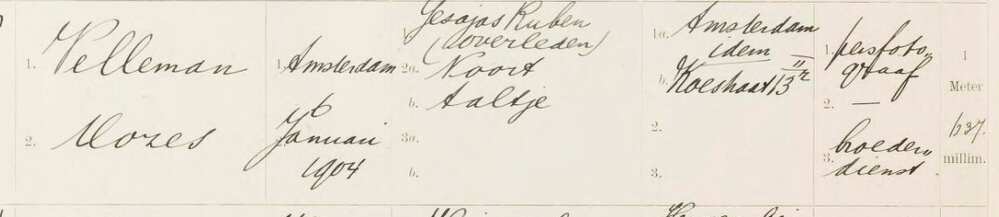 1. Velleman
2. Mozes
1. Amsterdam
6
Januari
1904
1. Jesajas Ruben
(overleden)
2a. Noort
b. Aaltje
3a.
b.
1a. Amsterdam
idem
b. 13 II
2.
3.
1. persfoto„
graaf
2. —
3. broeder„
dienst
1
Meter
637.
millim.